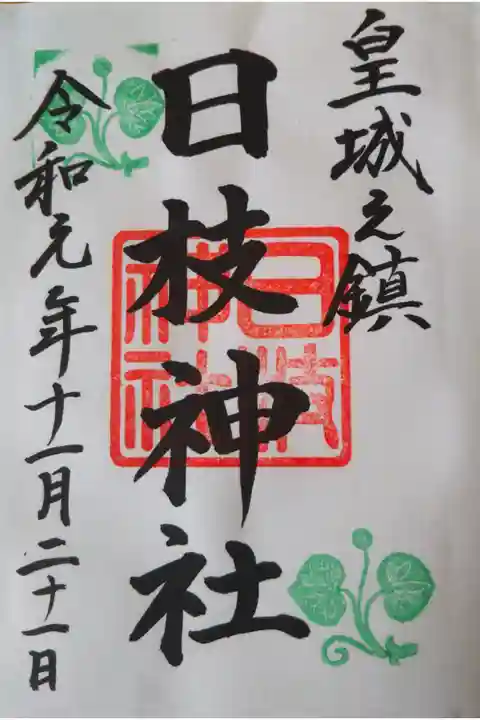 皇城之鎮
日枝神社
日枝
神社
令和元年十一月二十一日